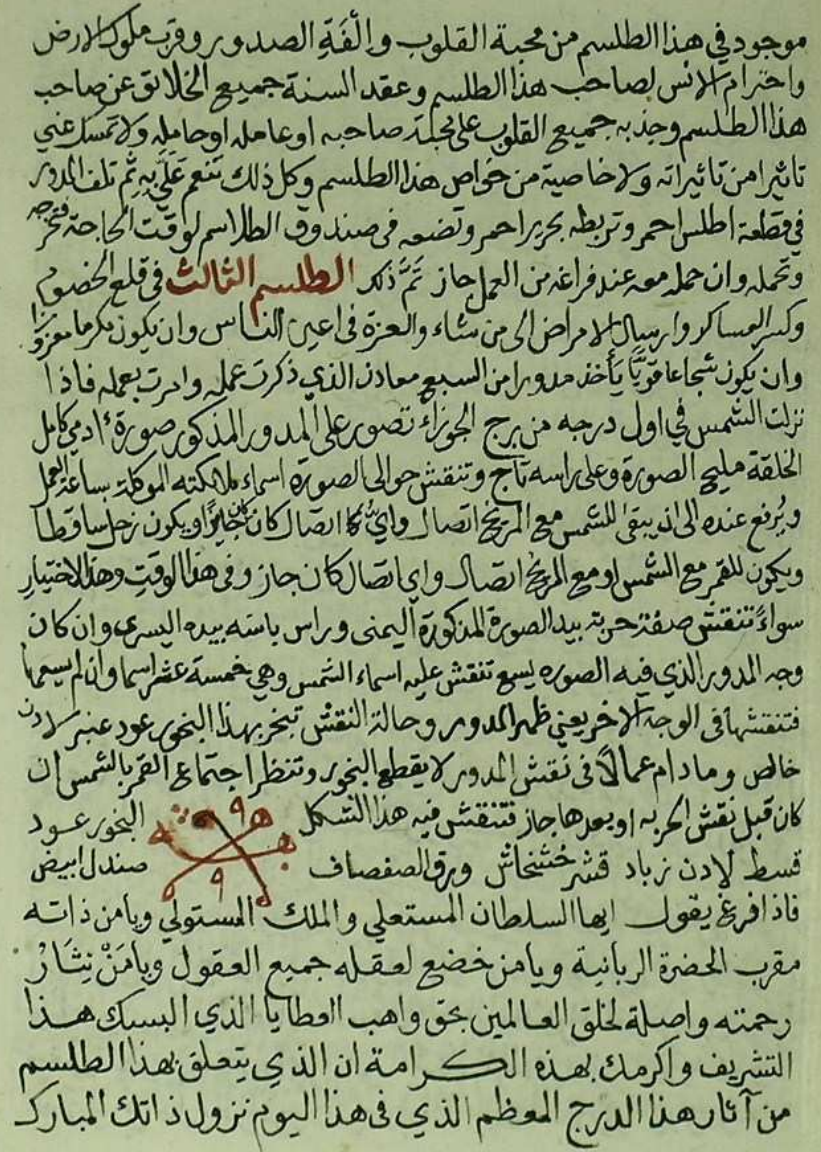 موجود في هذا الطلسم من محبة القلوب والفة الصدور وقرب ملوك الارض
واحترام الانس لصاحب هذا الطلسم وعقد السنة جميع الخلائق عن صاحب
هذا الطلسم وجذبه جميع القلوب على محبة صاحبه او عامله او حامله ولا تمسك عني
تاثيرا من تاثيراته ولا خاصية من خواص هذا الطلسم وكل ذلك تنعم عَلَيَّ بِهِ ثم تلف المدور
في قطعة اطلس احمر وتربطه بحرير احمر وتضعه في صندوق الطلاسم لوقت الحاجة فتخرجه
وتحمله وان حمله معه عند فراغه من العمل جاز تَمَّ ذلك الطلسم الثالث في قلع الخصوم
وكسر العساكر وارسال الامراض الى من شاء والعزة في اعين الناس وان يكون مكرما معززا
وان يكون شجاعا قويًّا يأخذ مدورا من السبع معادن الذي ذكرت عمله وامرت بعمله فاذا
نزلت الشمس في اول درجه من برج الجوزاء تصور على المدور المذكور صورة ادمي كامل
الخلقة مليح الصورة وعلى راسه تاج وتنقش حوالى الصورة اسماء ملائكته الموكلة بساعة العمل
ويُرفع عنده الى ان يبقى للشمس مع المريخ اتصال واي اتصال كان كان جايزًا ويكون زحل ساقطا
ويكون للقمر مع الشمس او مع المريخ اتصال واي اتصال كان جاز وفي هذا الوقت وهذا الاختيار
سواءً تنقش صفة حربة بيد الصورة المذكورة اليمنى وراس باسه بيده اليسرى وان كان
وجه المدور الذي فيه الصوره يسع تنقش عليه اسماء الشمس وهي خمسة عشر اسما وان لم يسعها
فتنقشها في الوجه الاخر يعني ظهر المدور وحالة النقش تبخر بهذا البخور عود عنبر لادن
خالص وما دام عمالًا في نقش المدور لا يقطع البخور وتنظر اجتماع القمر بالشمس ان
كان قبل نقش الحربه او بعدها جاز فتنقش فيه هذا الشكل البخور عود
قسط لادن زباد قشر خشخاش ورق الصفصاف صندل ابيض
فاذا فرغ يقول ايها السلطان المستعلي والملك المستولي ويا من ذاته
مقرب الحضرة الربانية ويا من خضع لعقله جميع العقول ويا مَنْ نِثَارُ
رحمته واصلة لخلق العالمين بحق واهب العطايا الذي البسك هذا
التشريف واكرمك بهذه الكرامة ان الذي يتعلق بهذا الطلسم
من آثار هذا الدرج المعظم الذي في هذا اليوم نزول ذاتك المبارك